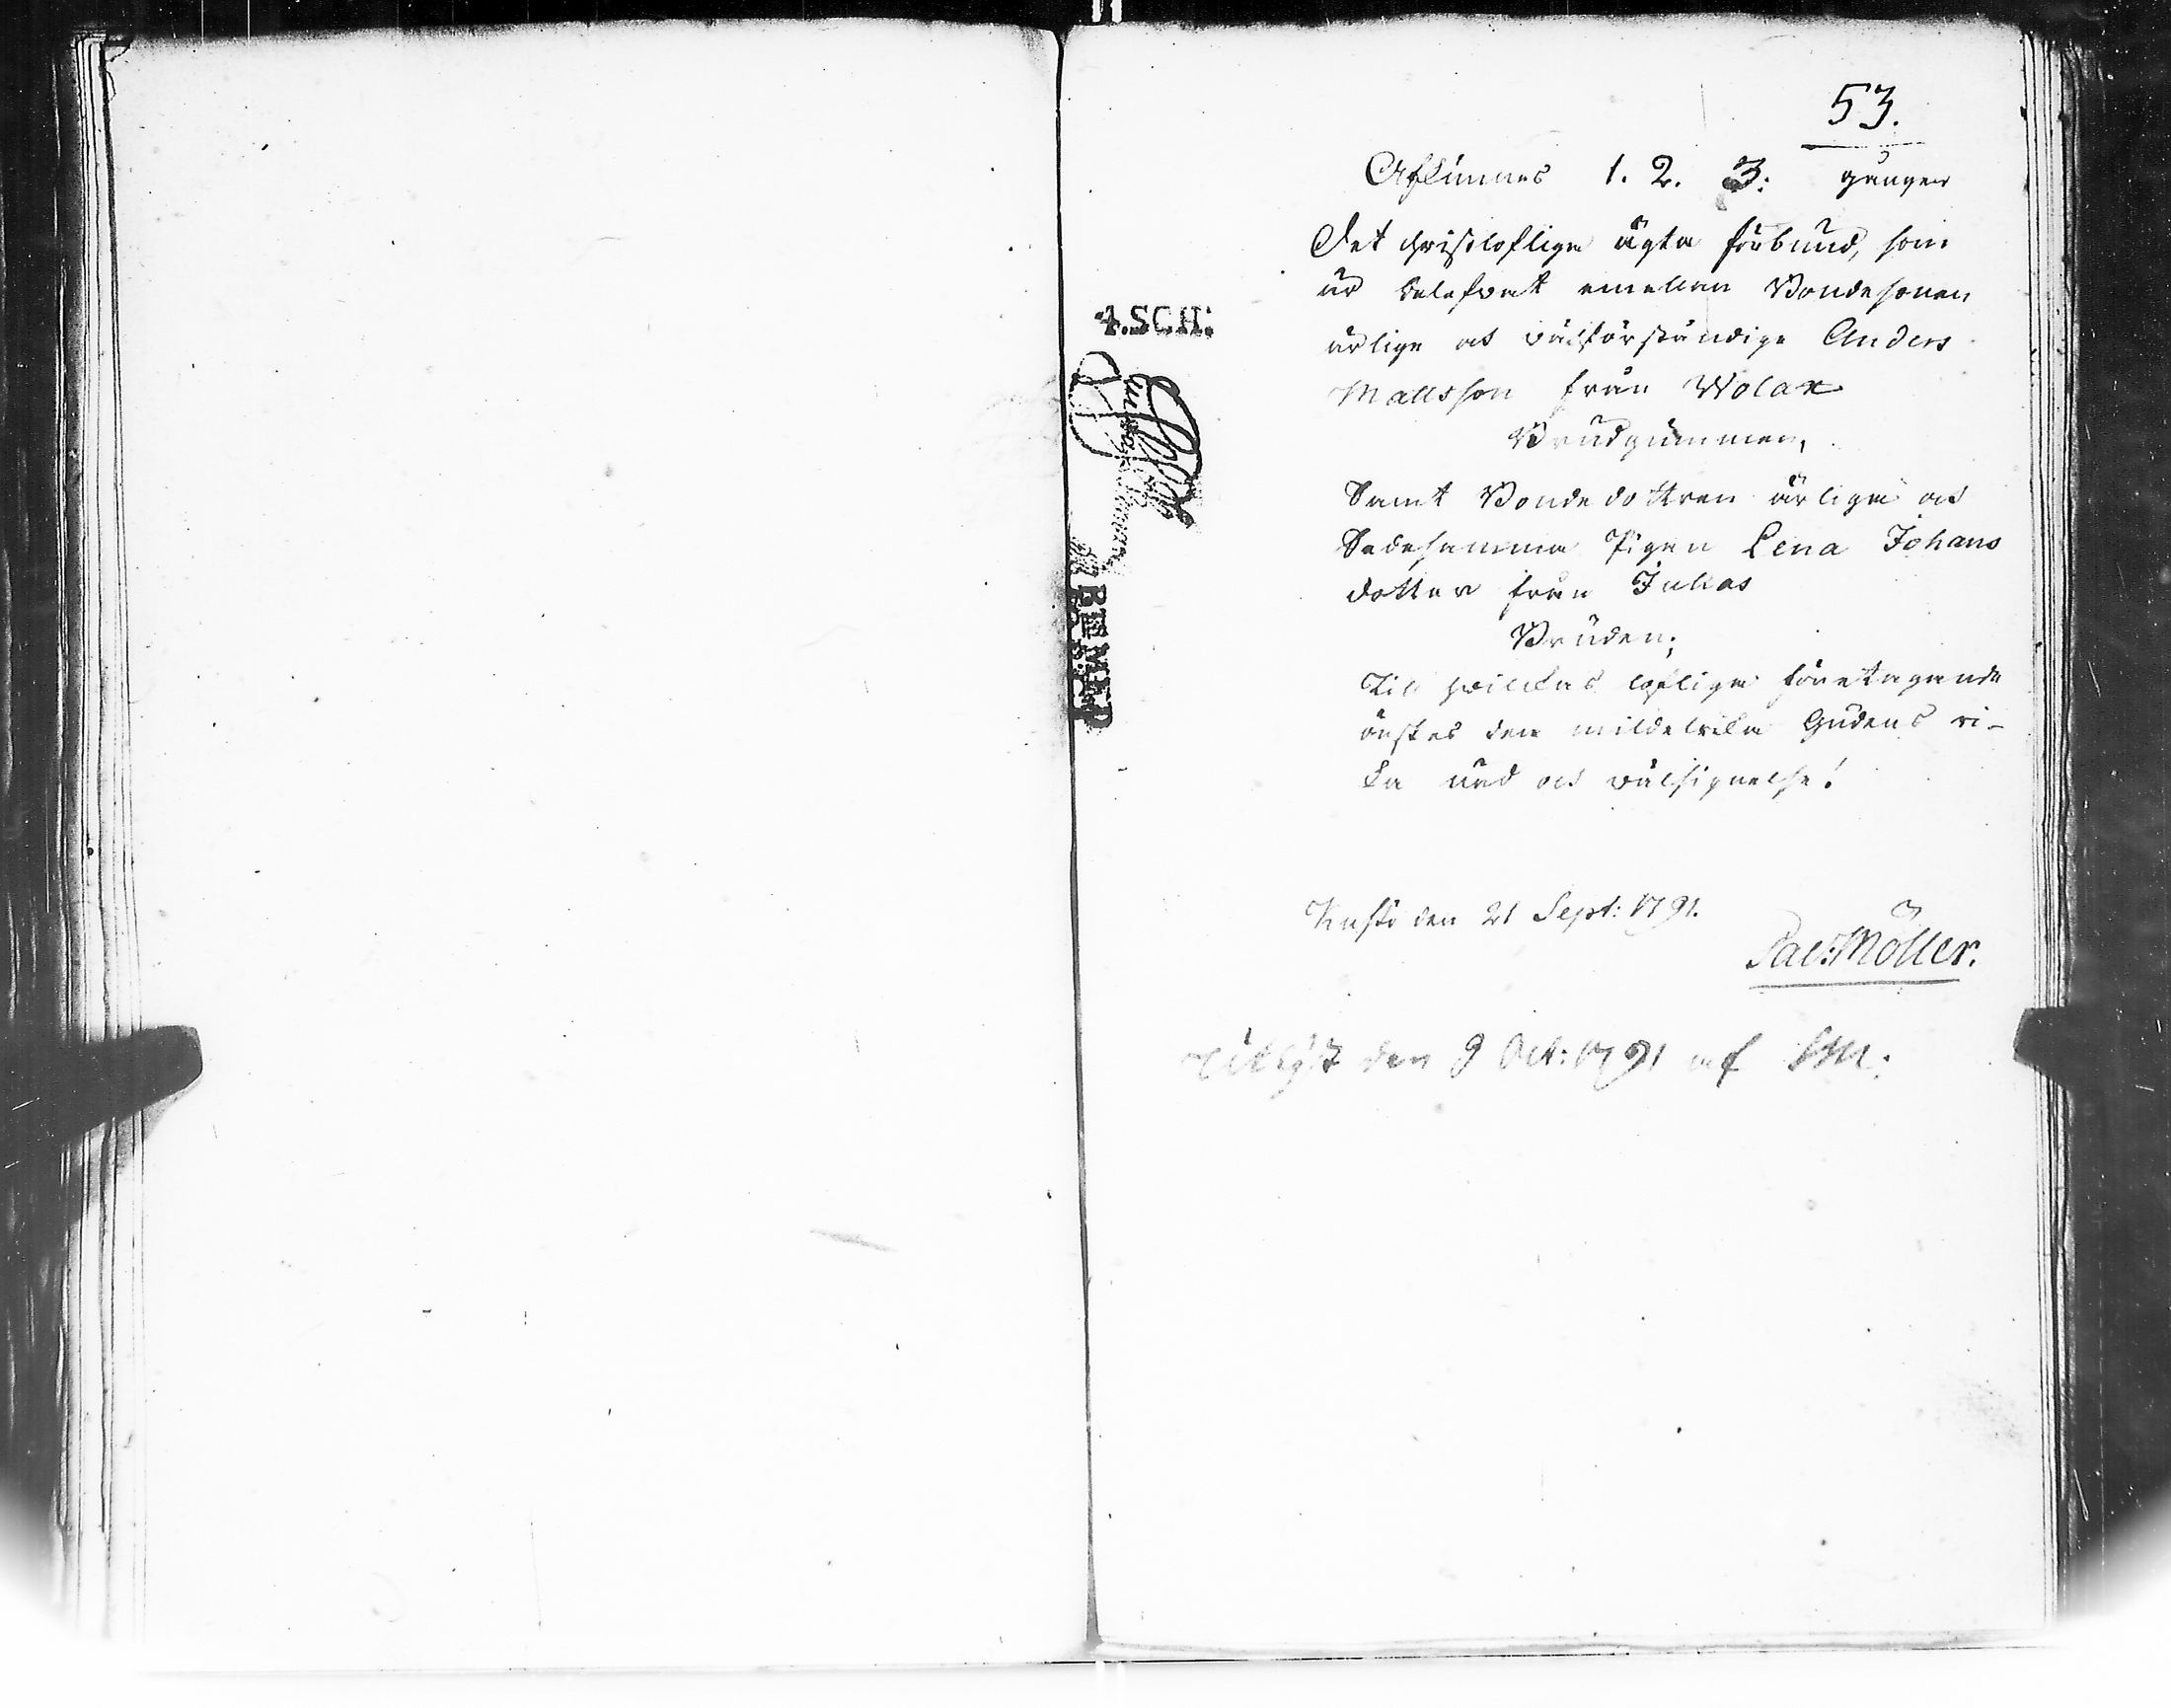 53.
Afkunnes 1. 2. 3: gånger
Det christloflige ägta förbund, som
är belefvat emellan Bondesonen
ärlige ock välförståndige Anders
Mattsson från Wolax
Brudgummen,
Samt Bondedottren ärliga ock
Sedesamma Pigan Lena Johans
dotter från Jullas
Bruden;
Till hvilkas loflige företagande
önskes den milderika Gudens ri-
ka nåd ock välsignelse!
den 21 Sept: 1791.
Sal: Möller.
den 9 Oct: 1791 af SM:
4.SCH: